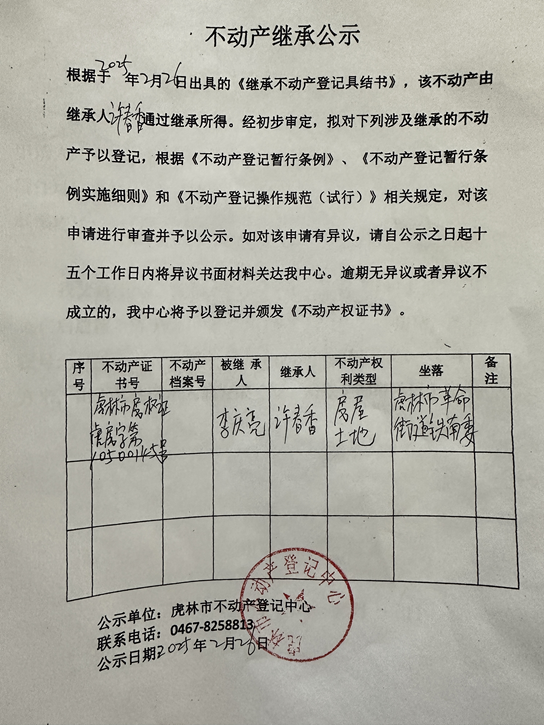 不动产继承公示
根据于2025年2月26日出具的《继承不动产登记具结书》，该不动产由
继承人许春香通过继承所得。经初步审定，拟对下列涉及继承的不动
产予以登记，根据《不动产登记暂行条例》、《不动产登记暂行条
例实施细则》和《不动产登记操作规范（试行）》相关规定，对该
申请进行审查并予以公示。如对该申请有异议，请自公示之日起十
五个工作日内将异议书面材料关达我中心。逾期无异议或者异议不
成立的，我中心将予以登记并颁发《不动产权证书》。
序号 不动产证书号 不动产档案号 被继承人 继承人 不动产权利类型 坐落 备注
虎林市房权证 李庆亮 许春香 房屋 虎林市革命
虎房字第 土地 街道铁南委
号
公示单位：虎林市不动产登记中心
联系电话：0467-8258813
公示日期：2025年2月26日
虎林市不动产登记中心